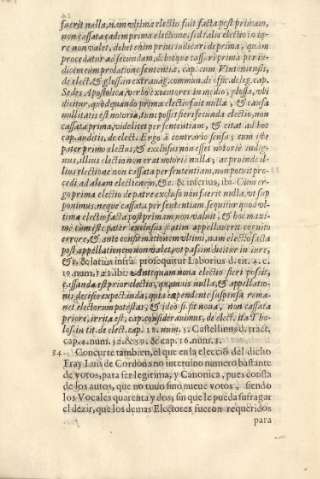 fuerit nulla, nam ultima electio fuit facta post primam,
non cassata eadem prima electione, sed talis electio in iu-
re non valet, debet enim prius iudicari de prima, quàm
procedatur ad secundam, & hoc per cassare prima per iu-
dicem
de elect. & glos. in extrauag. commun. de offic. deleg. cap.
Sedes Apostolica, verbo executores in medio, glossa, ubi
dicitur, quod quando prima electio fuit nulla, & causa
nullitatis est notoria, tunc potest fieri secunda electio, non
cassata prima, videlicet per sententiam, & citat ad hoc
cap. auditis, de elect. Ergo à contrario sensu; cum ibi
pater primo electus, & exclusus non esset notoriè indig-
nus, illius electio non erat notoriè nulla; ac proinde il-
lius electione non cassata per sententiam, non potuit pro-
cedi ad aliam electionem, &c. & inferius, ibi: Cùm er-
go prima electio de patre excluso non fuerit nulla, ut sup-
ponimus, neque cassata per sententiam sequitur quod ul-
tima electio facta post primam non valuit, & hoc maxi-
mè cùm iste pater exclusus statim appellauerit coram
& ante confirmationem ultimi, nam electio facta
post appellationem non valet, ut passim docetur in iure,
&c. & latius infrà prosequitur Laborius d. tit. 4. c.
19. num. 12. ibi: Antequam noua electio fieri possit,
cassanda est prior electio, quamuis nulla, & appellatio-
nis decisio expectanda, quia impendente suspensa rema-
net electorum potestas; & ideo si fit noua, non cassata
priori, irrita est, cap. considerauimus, de elect. ita Tho-
los. in tit. de elect. cap. 12. num. 5. Castellinus, d. tract.
cap. 2. num. 32. & 39. & cap. 16. num. 3.
54 Concurre tambien, el que en la eleccion del dicho
Fray Luis de Cordoba no interuino numero bastante
de votos, para ser legitima, y Canonica, pues consta
de los autos, que no tuuo sino nueue votos, siendo
los Vocales quarenta y dos, sin que le pueda sufragar
el dezir, que los demas Electores fueron requeridos
para